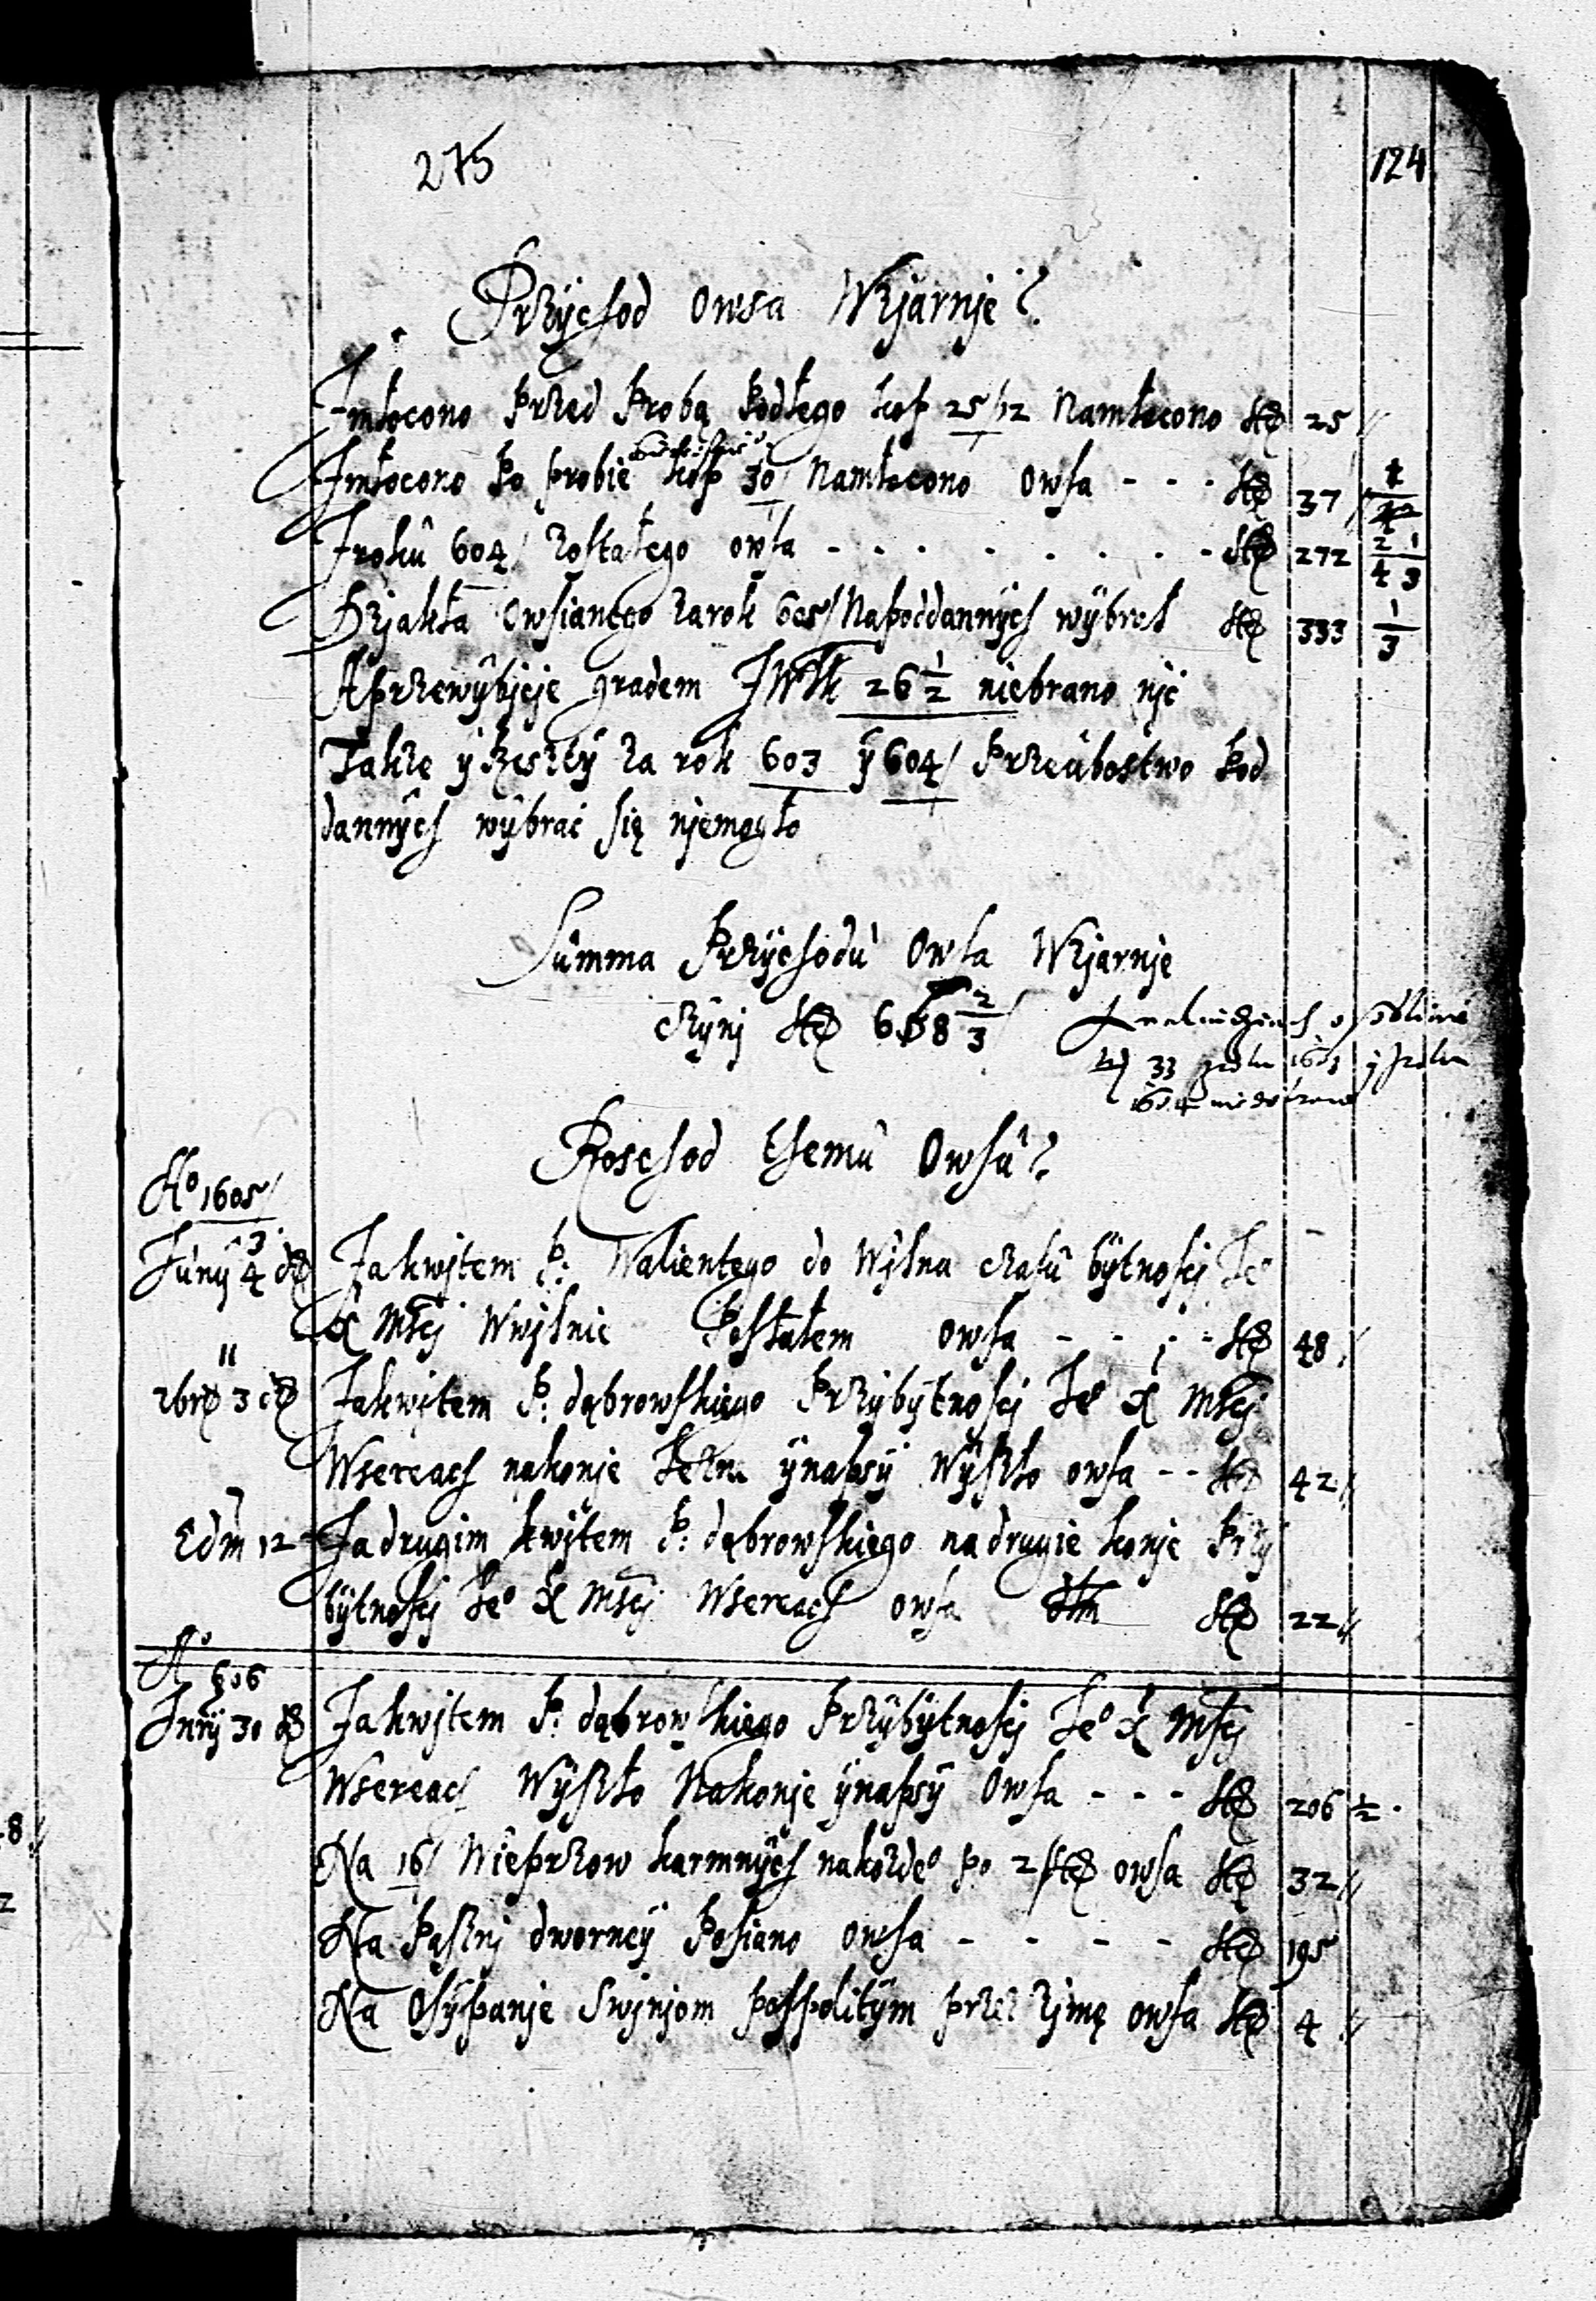 275
124
Przychod Owsa Wzjarnje
Jmłocono przed probą podłego kop 25/12 Namłocono 25
Jmłocono Po probie kop 30/ Namłocono owsa - - - 37
Z roku 604/ Zostałego owsa - - - - - - - - 272
Dzjakła Owsianego za rok 605/ Na poddannych wybrał 333 1/3
A przewybicje gradem 26 1/2 niebrano njc
Takze y Reszty za rok 603 y 604/ Prze ubostwo Pod
dannych wybrać się njemogło
Summa Przychodu Owsa Wzjarnje
czynj 668 2/3
33 1603
1604
Roschod themu Owsu
Ao 1605/
Juny 4 Za kwjtem P: Walientego do Wjlna czasu bytnoscj Je°
X Mscj Wwjlnie Posłałem owsa - - - - 48
3 Za kwjtem P: dąbrowskiego Przybytnoscj Je° X Mscj
Wsereach nakonje y napsy Wyszło owsa - - 42
Edm 12 Za drugim kwjtem P: dąbrowskiego na drugie konje Przy
bytnoscj Je° X Mscj Wsereach owsa 22
A° 606
30 Za kwjtem P: dąbrowskiego Przybytnoscj Je° X Mscj
Wsereach Wyszło Nakonje y napsy Owsa - - - 206 1/2
Na 16/ Wieprzow karmnych nakożde° po 2 owsa 32
Na Pasznj dworney Posiano owsa - - - - 195
Na Osypanje Swjnjom pospolitym przez zjmę owsa 4